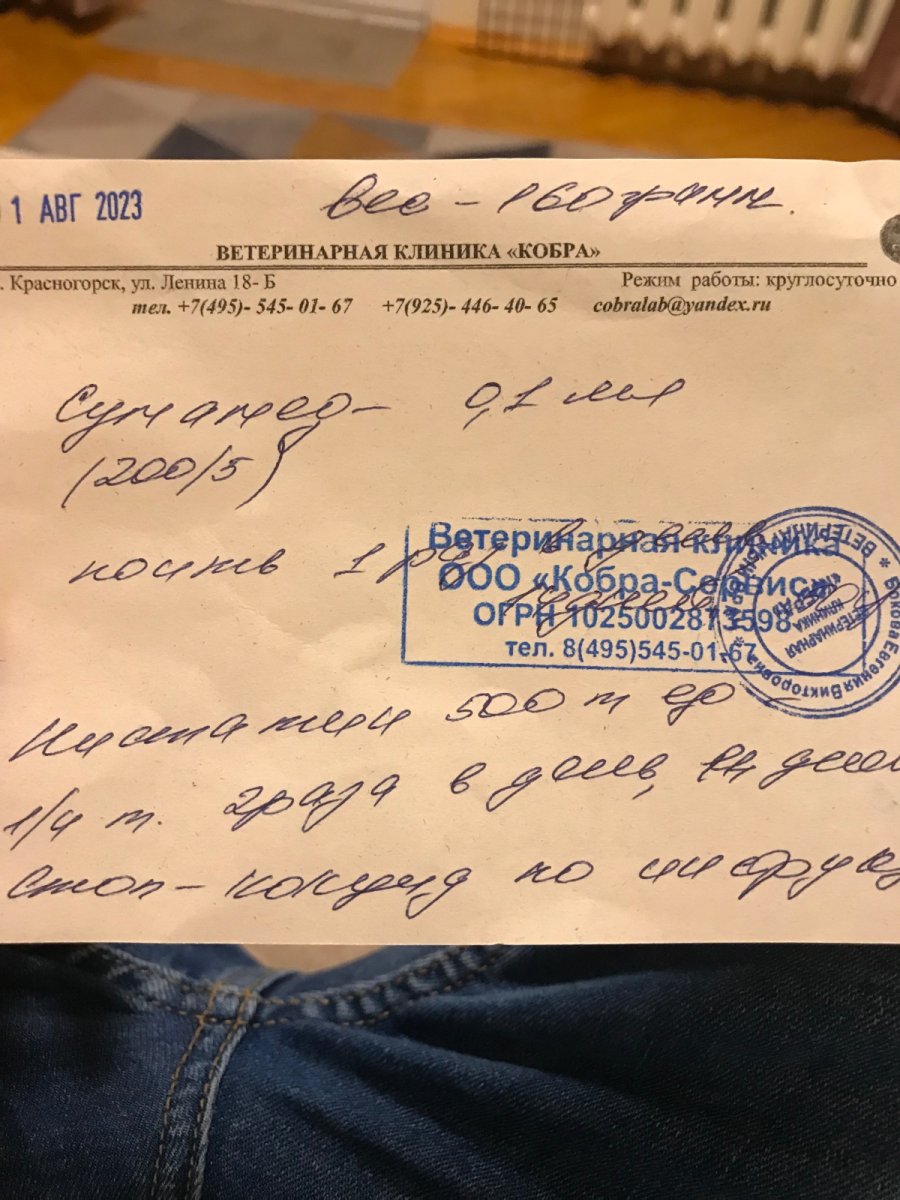 1 АВГ 2023
вес - 160 грамм.
ВЕТЕРИНАРНАЯ КЛИНИКА «КОБРА»
. Красногорск, ул. Ленина 18- Б Режим работы: круглосуточно
тел. +7(495)- 545- 01- 67 +7(925)- 446- 40- 65 cobralab@yandex.ru
Сумамед - 0,1 мл
(200/5)
поить 1 раз в день
Ветеринарная клиника
ООО «Кобра-Сервис»
ОГРН 1025002873598
тел. 8(495)545-01-67
* Бокова Евгения Викторовна * ВЕТЕРИНАР
ВЕТЕРИНАРНАЯ КЛИНИКА
Нистатин 500 т ед -
1/4 т. 2 раза в день, 14 дней
Стоп - кокцид по инструк